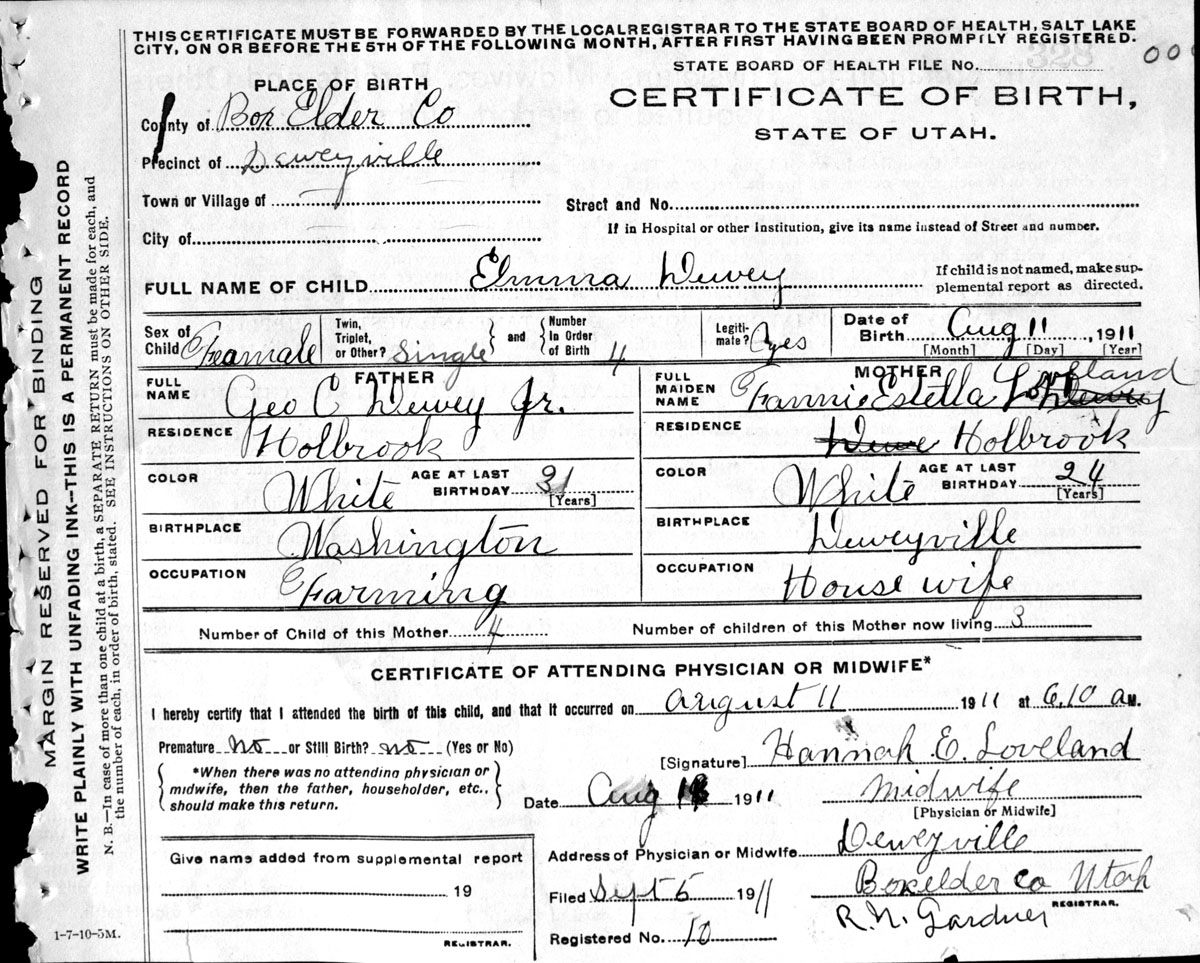 THIS CERTIFICATE MUST BE FORWARDED BY THE LOCAL REGISTRAR TO THE STATE BOARD OF HEALTH, SALT LAKE
CITY, ON OR BEFORE THE 5TH OF THE FOLLOWING MONTH, AFTER FIRST HAVING BEEN PROMPTLY REGISTERED.
STATE BOARD OF HEALTH FILE NO.
PLACE OF BIRTH
CERTIFICATE OF BIRTH,
STATE OF UTAH.
County of Box Elder Co
Precinct of Deweyville
Town or Village of
Street and No.
City of
If in Hospital or other Institution, give its name instead of Street and number.
FULL NAME OF CHILD Elmina Dewey
If child is not named, make sup-
plemental report as directed.
Sex of Child Feamale
Twin, Triplet, or Other? Single and Number In Order of Birth 4
Legiti-mate? yes
Date of Birth Aug 11, 1911
[Month] [Day] [Year]
FATHER
FULL NAME Geo C Dewey Jr.
RESIDENCE Holbrook
COLOR White AGE AT LAST BIRTHDAY 31 [Years]
BIRTHPLACE Washington
OCCUPATION Farming
MOTHER
FULL MAIDEN NAME Fannie Estella Loveland
RESIDENCE Holbrook
COLOR White AGE AT LAST BIRTHDAY 24 [Years]
BIRTHPLACE Deweyville
OCCUPATION House wife
Number of Child of this Mother 4 Number of children of this Mother now living 3
CERTIFICATE OF ATTENDING PHYSICIAN OR MIDWIFE*
I hereby certify that I attended the birth of this child, and that it occurred on august 11 1911 at 6.10 a M.
Premature no or Still Birth? no (Yes or No)
*When there was no attending physician or
midwife, then the father, householder, etc.,
should make this return.
[Signature] Hannah E. Loveland
Date Aug 1911 Midwife
[Physician or Midwife]
Give name added from supplemental report
19
REGISTRAR.
Address of Physician or Midwife Deweyville
Boxelder Co Utah
Filed Sept 5 1911
R. N. Gardner
REGISTRAR.
Registered No. 10
1-7-10-5M.
MARGIN RESERVED FOR BINDING
WRITE PLAINLY WITH UNFADING INK--THIS IS A PERMANENT RECORD
N. B.—In case of more than one child at a birth, a SEPARATE RETURN must be made for each, and
the number of each, in order of birth, stated. SEE INSTRUCTIONS ON OTHER SIDE.